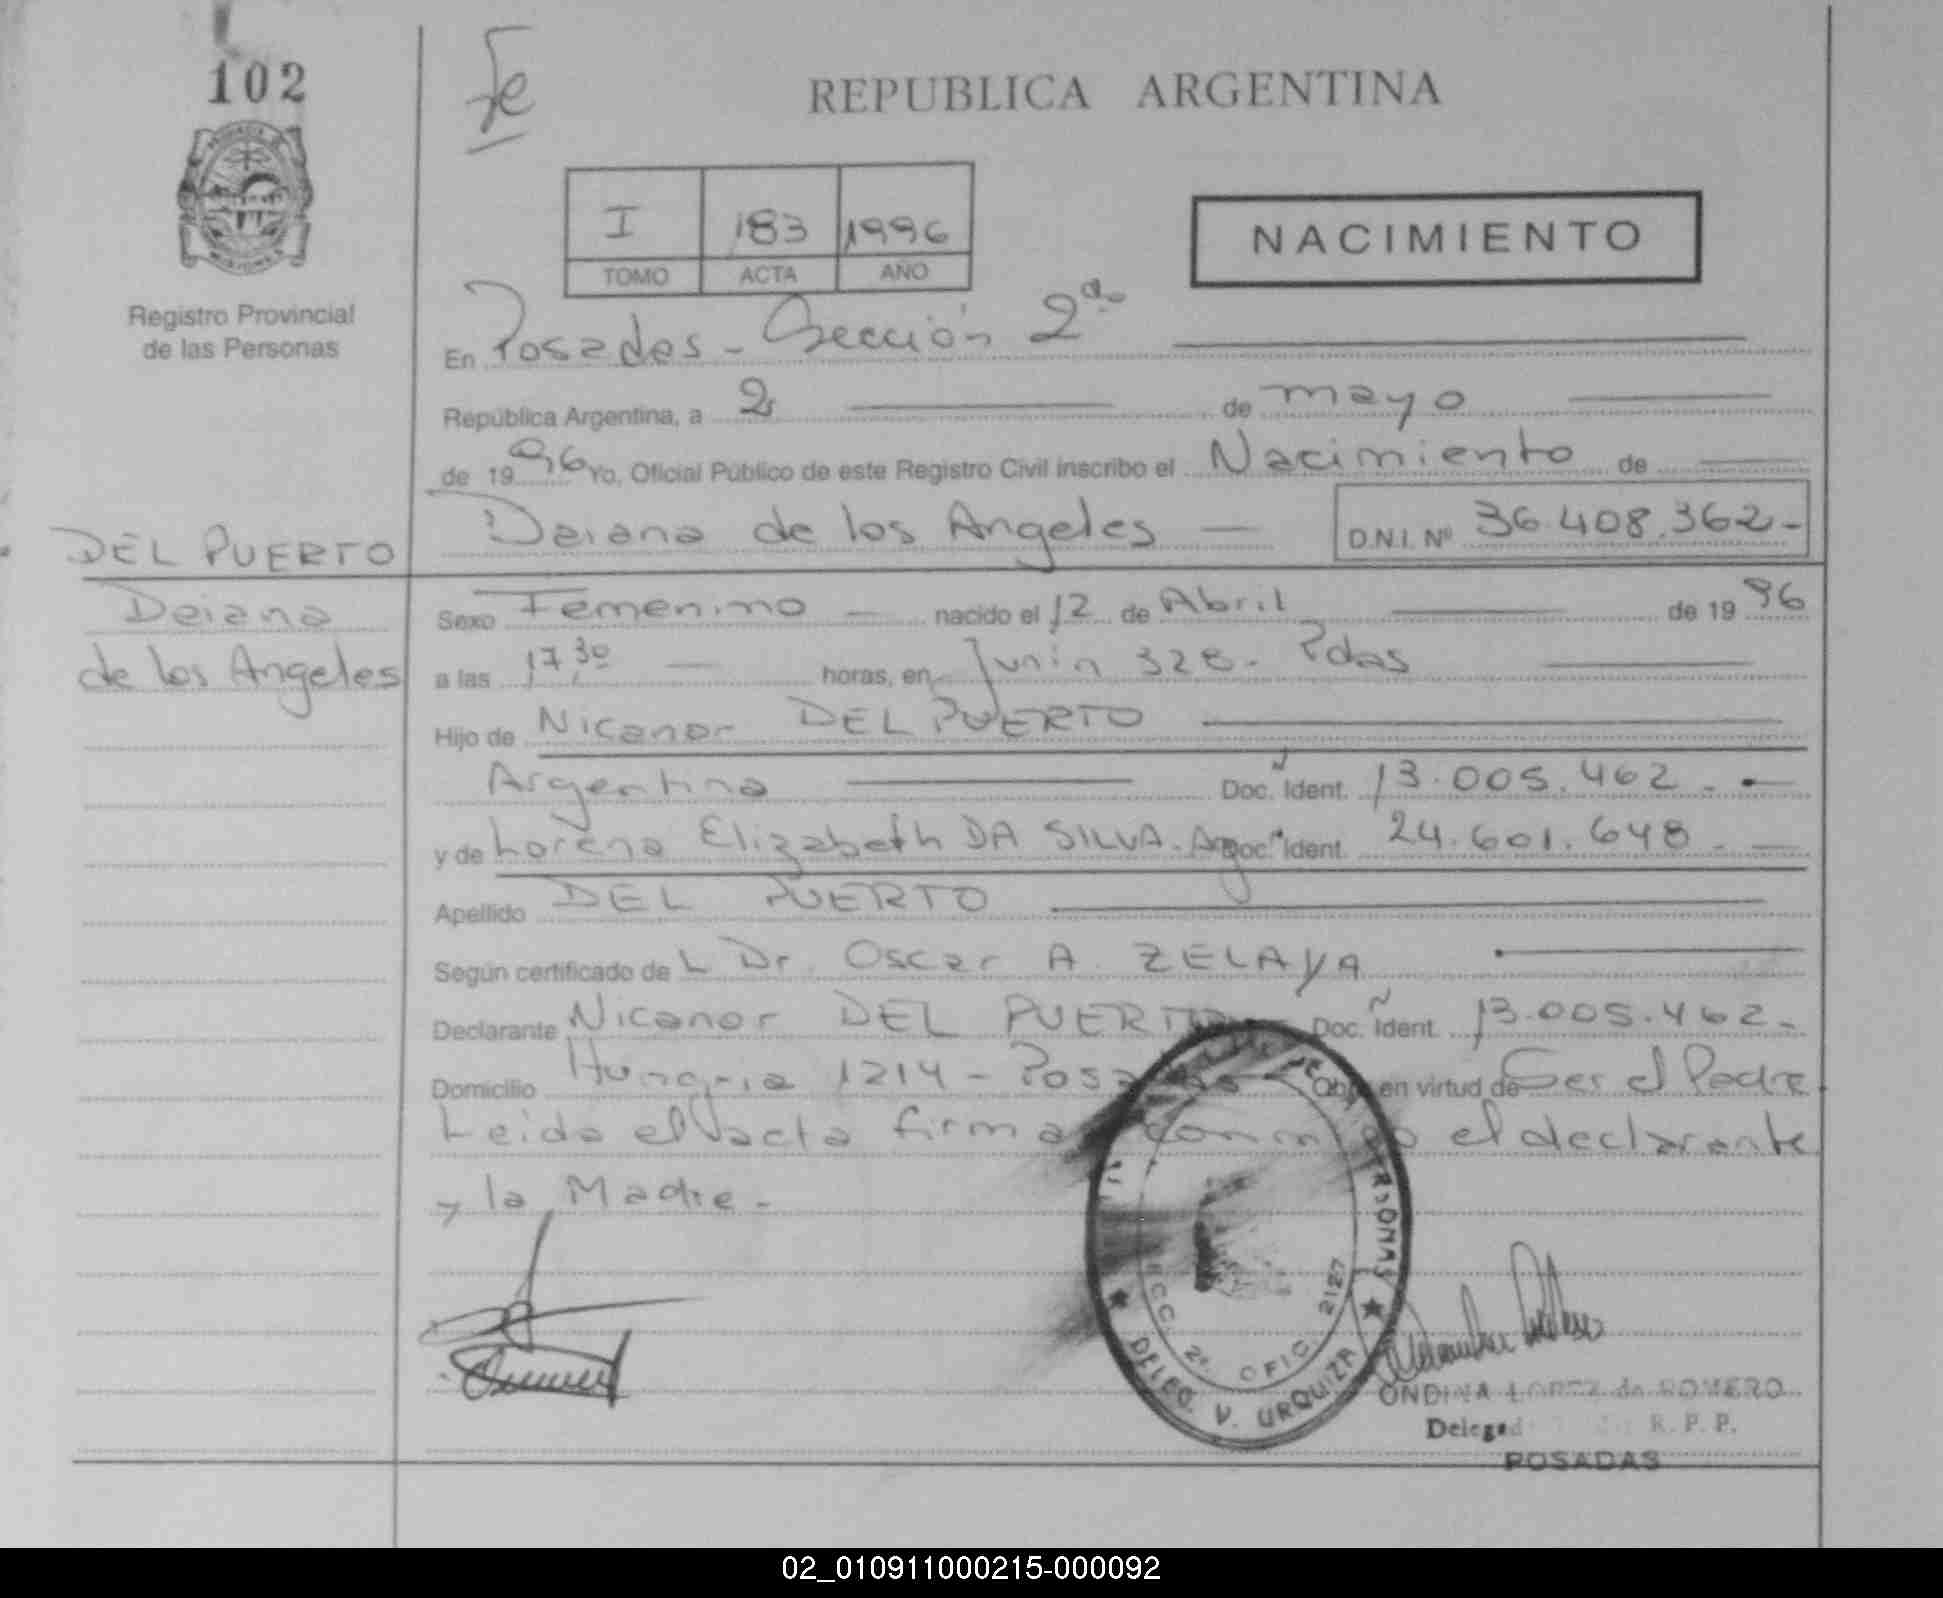 102
Fe
REPUBLICA ARGENTINA
I 183 1996
TOMO ACTA AÑO
NACIMIENTO
Registro Provincial
de las Personas
En Posadas - Sección 2da
República Argentina, a 2 de mayo
de 1996 Yo, Oficial Público de este Registro Civil inscribo el Nacimiento de
Daiana de los Angeles D.N.I. Nº 36.408.362-
DEL PUERTO
Daiana
de los Angeles
Sexo Femenino nacido el 12 de Abril de 1996
a las 17,30 horas, en Junín 328. Pdas
Hijo de Nicanor DEL PUERTO
Argentina Doc. Ident. 13.005.462.-
y de Lorena Elizabeth DA SILVA. Arg Doc. Ident. 24.601.648.-
Apellido DEL PUERTO
Según certificado de L Dr. Oscar A. ZELAYA
Declarante Nicanor DEL PUERTO Doc. Ident. 13.005.462-
Domicilio Hungria 1214 - Posadas Obra en virtud de Ser el Padre.
Leida el acta firma conmigo el declarante
y la Madre-
PERSONAS
SECC. 2ª. OFIC. 2127
DELEG. V. URQUIZA
ONDINA LOPEZ de ROMERO
R. P. P.
POSADAS
02_010911000215-000092